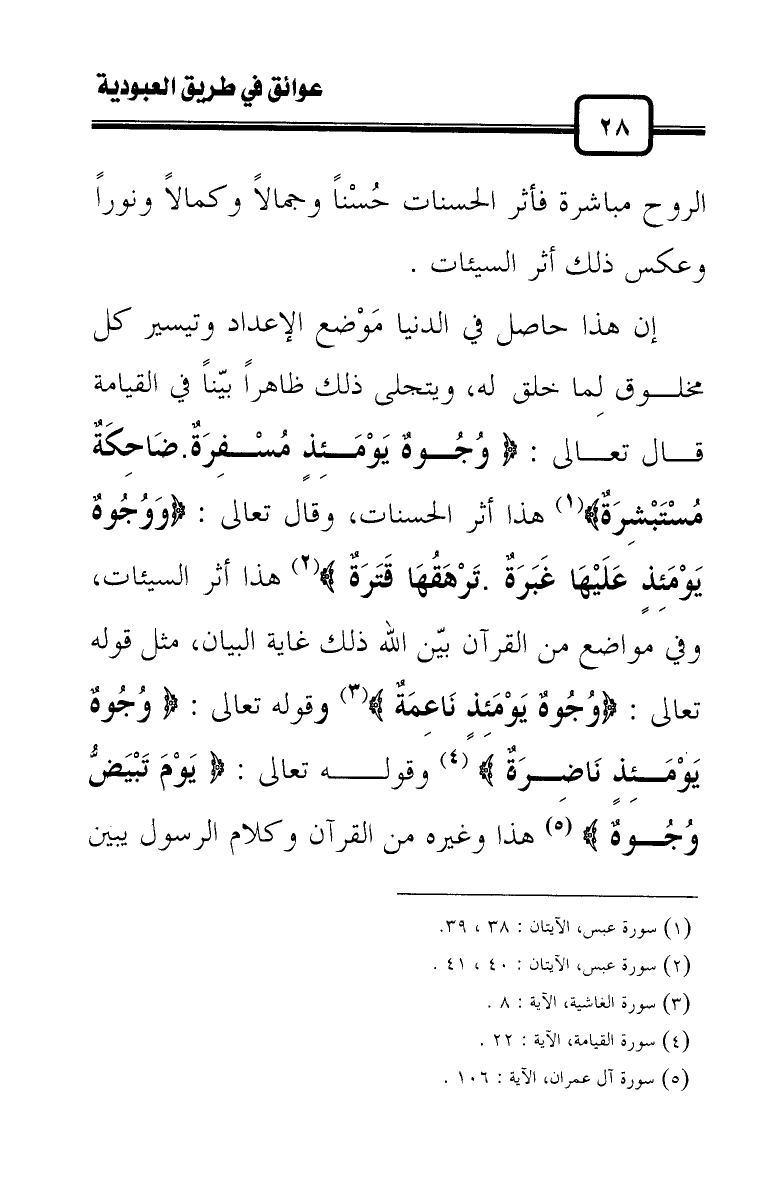 عوائق في طريق العبودية
٢٨
الروح مباشرة فأثر الحسنات حُسْناً وجمالاً وكمالاً ونوراً
وعكس ذلك أثر السيئات .
إن هذا حاصل في الدنيا مَوْضع الإعداد وتيسير كل
مخلـــوق لِما خلق له، ويتجلى ذلك ظاهراً بيّناً في القيامة
قـــال تعـــالى : ﴿ وُجُـــوهٌ يَوْمَـــئِذٍ مُسْـــفِرَةٌ.ضَاحِكَةٌ
مُسْتَبْشِرَةٌ﴾(١) هذا أثر الحسنات، وقال تعالى : ﴿وَوُجُوهٌ
يَوْمَئِذٍ عَلَيْهَا غَبَرَةٌ .تَرْهَقُهَا قَتَرَةٌ ﴾(٢) هذا أثر السيئات،
وفي مواضع من القرآن بيّن الله ذلك غاية البيان، مثل قوله
تعالى : ﴿وُجُوهٌ يَوْمَئِذٍ نَاعِمَةٌ ﴾(٣) وقوله تعالى : ﴿ وُجُوهٌ
يَوْمَـــئِذٍ نَاضِـــرَةٌ ﴾ (٤) وقولـــــه تعالى : ﴿ يَوْمَ تَبْيَضُّ
وُجُـــوهٌ ﴾ (٥) هذا وغيره من القرآن وكلام الرسول يبين
(١) سورة عبس، الآيتان : ٣٨ ، ٣٩.
(٢) سورة عبس، الآيتان : ٤٠ ، ٤١ .
(٣) سورة الغاشية، الآية : ٨ .
(٤) سورة القيامة، الآية : ٢٢ .
(٥) سورة آل عمران، الآية : ١٠٦ .